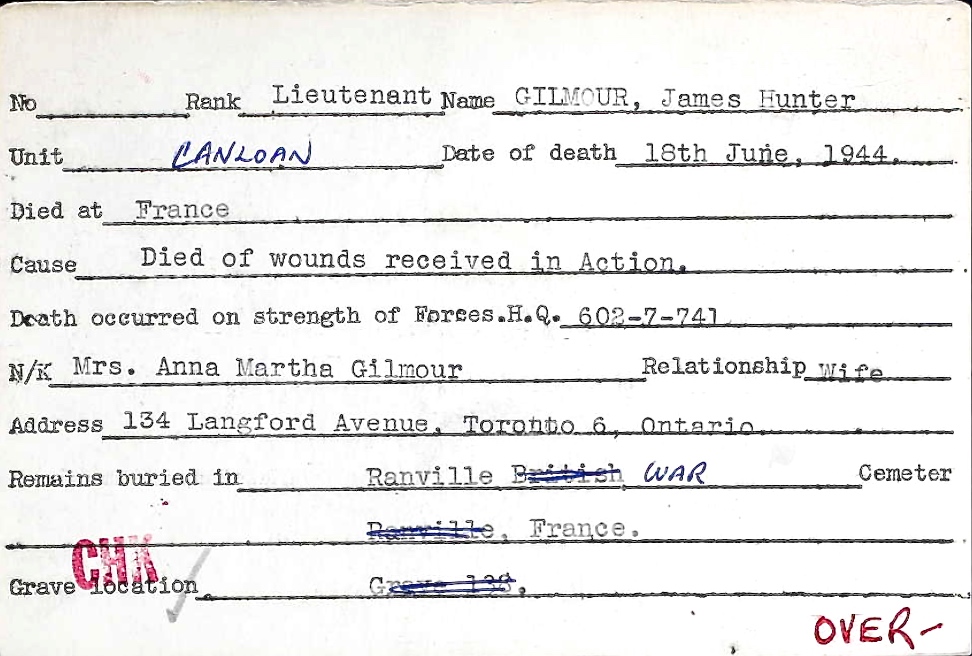 No Rank Lieutenant Name GILMOUR, James Hunter
Unit CANLOAN Date of death 18th June, 1944.
Died at France
Cause Died of wounds received in Action.
Death occurred on strength of Forces.H.Q. 602-7-741
N/K Mrs. Anna Martha Gilmour Relationship Wife
Address 134 Langford Avenue, Toronto 6, Ontario
Remains buried in Ranville British WAR Cemeter
Ranville, France.
CHK
Grave location Grave 138.
OVER-